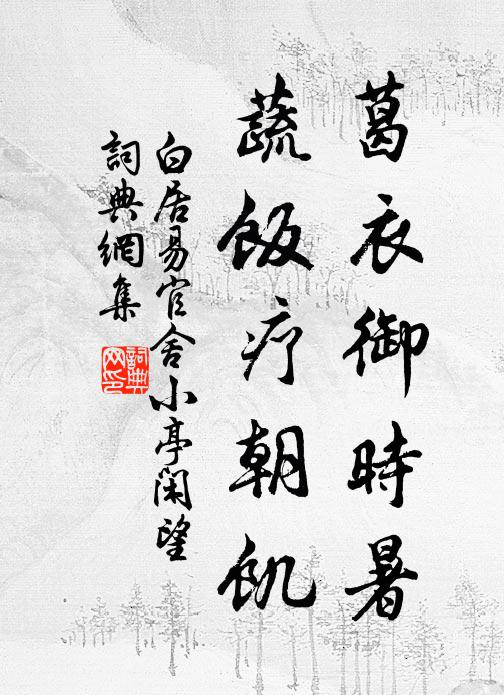 葛衣御時暑
蔬飯疗朝飢
白居易官舍小亭閑望
詞典網集
詞典網印